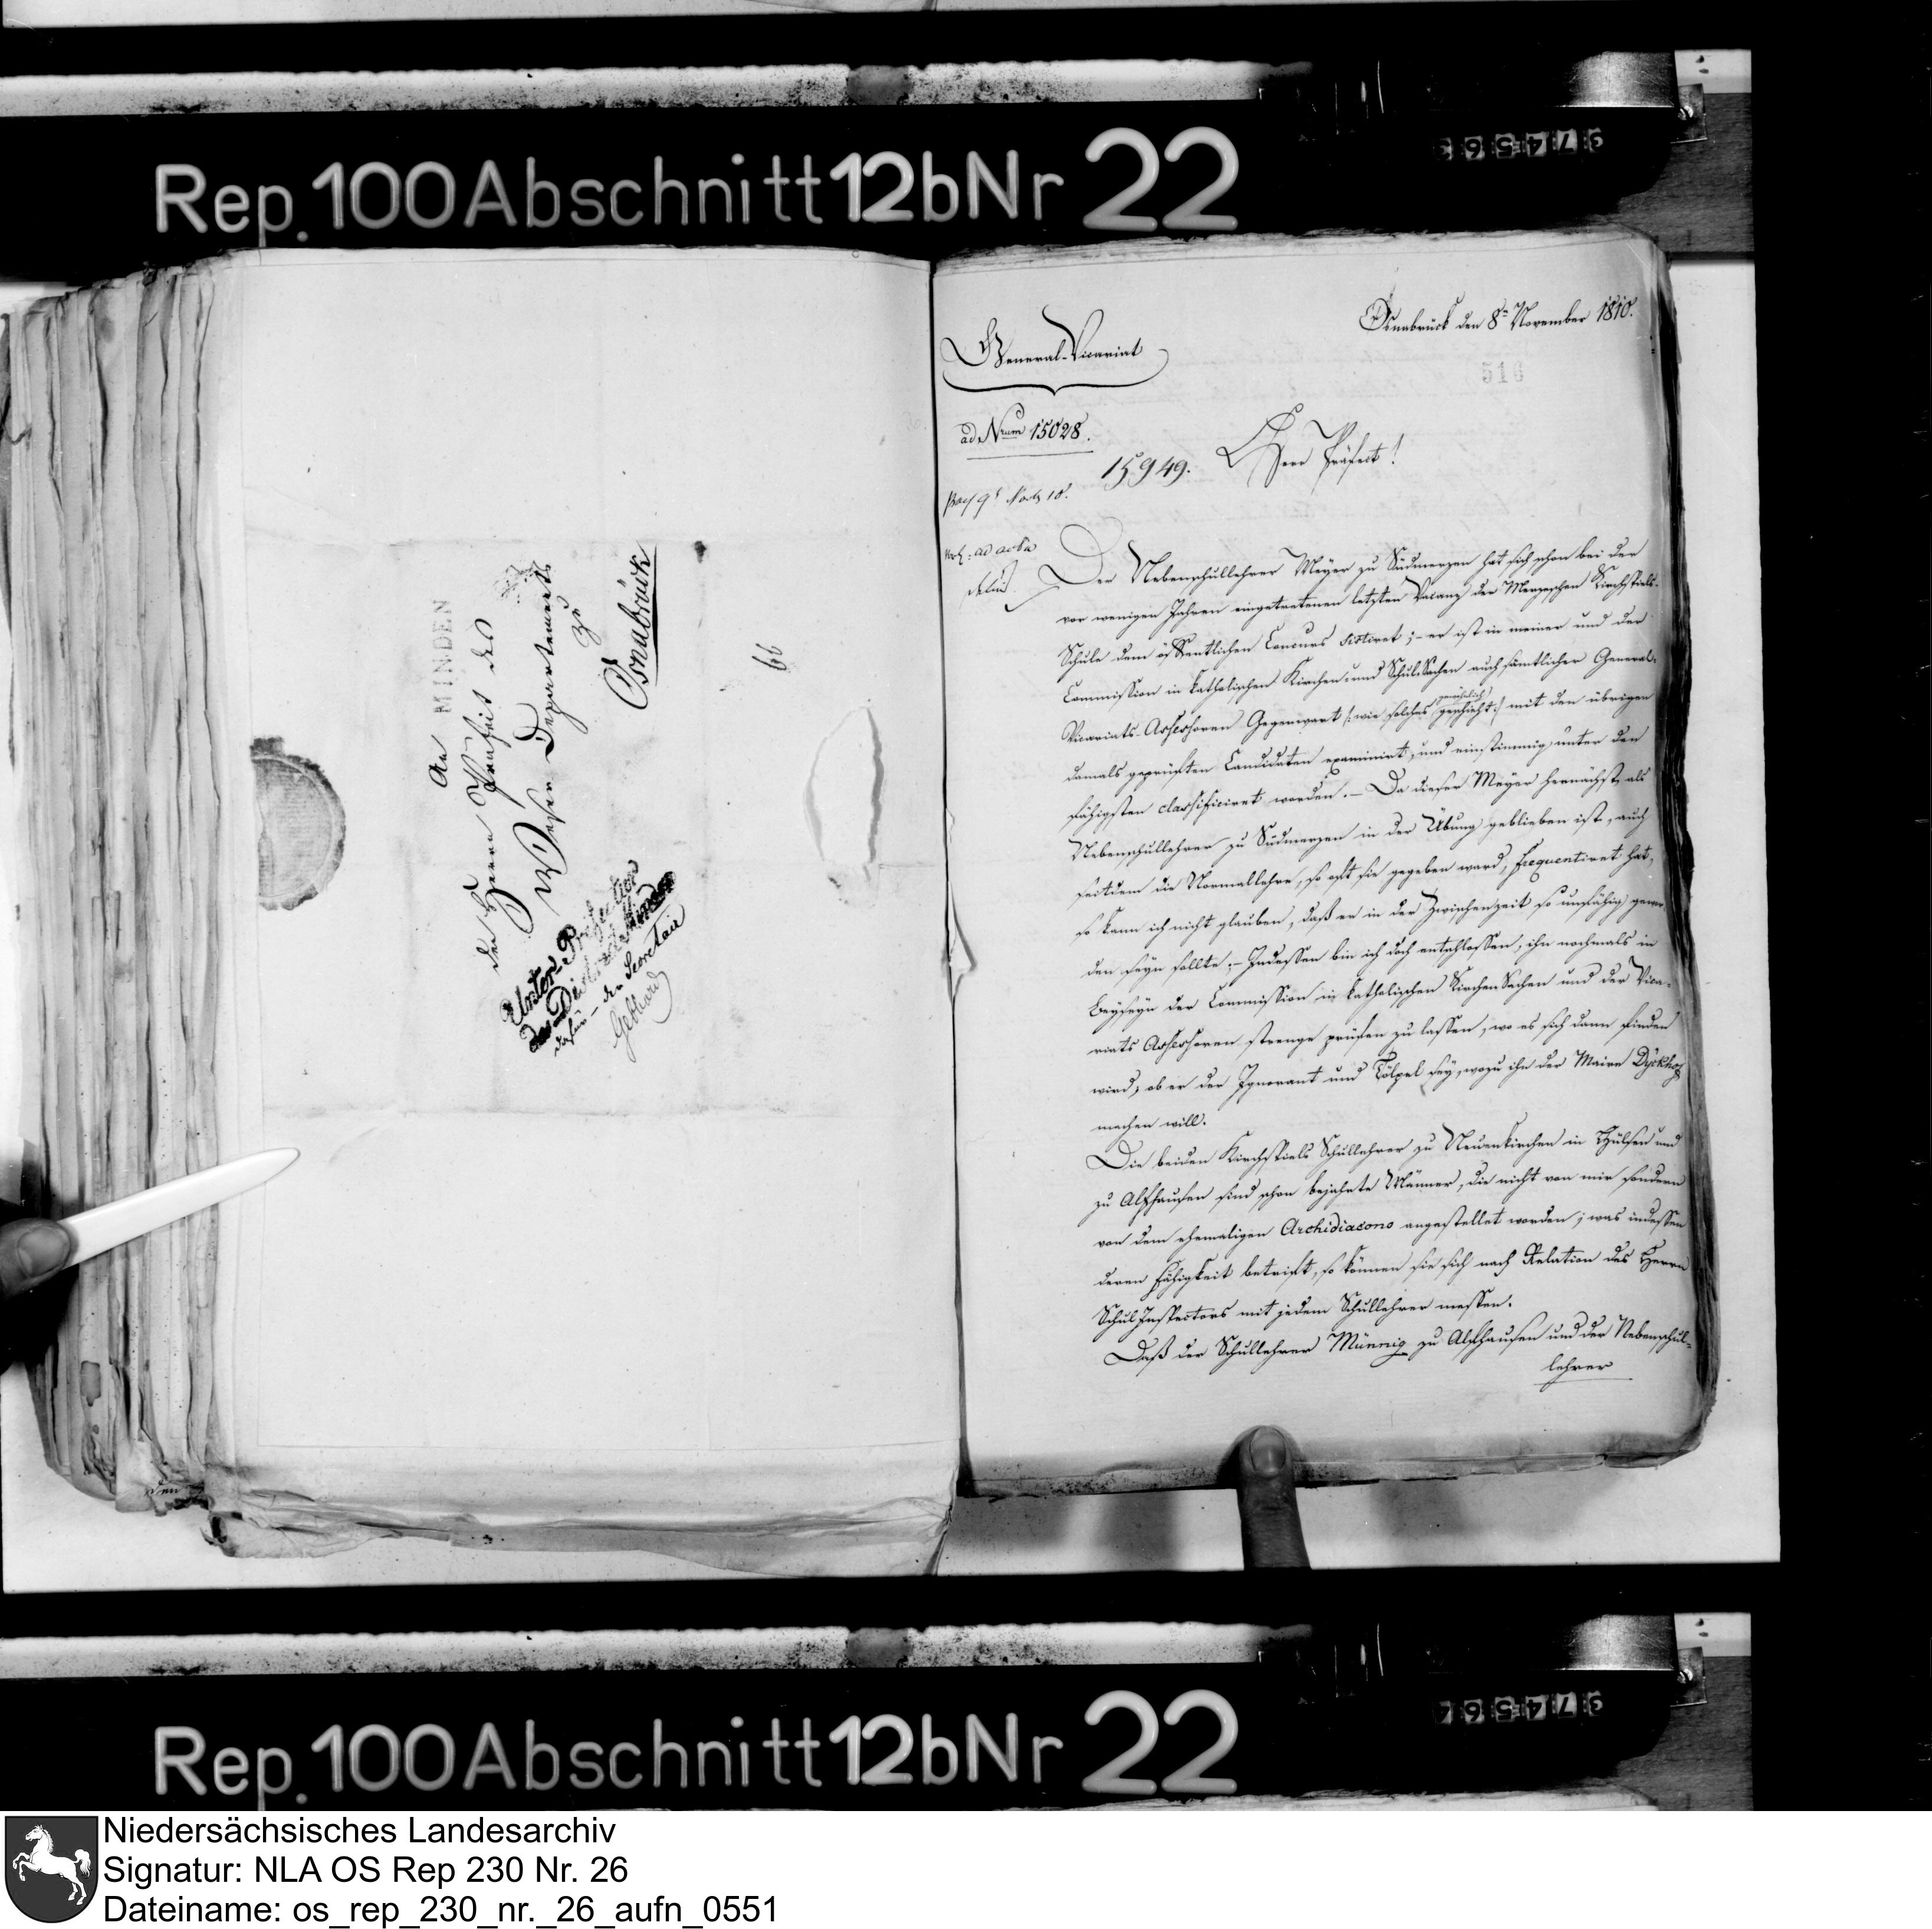 Rep. 100 Abschnitt 12b Nr 22
374563
MINDEN
An
den Herrn Praefeit des
Weser Departements
zu
Osnabrück
Unter-Präfectur
des Districts Minden
dafür - der Secretair
Gebhard
66
Osnabrück den 8n November 1810.
General-Vicariat
516
ad Nrum 15028.
15949.
Herr Präfect!
ad acta
Der Nebenschullehrer Meyer zu Südmerzen hat sich schon bei der
vor wenigen Jahren eingetretenen letzten Vacanz der Merzenschen Kirchspiels-
Schule dem öffentlichen Concurs sistiret ;- er ist in meiner und der
Commission in katholischen Kirchen- und SchulSachen auch sämtlicher General-
Vicariats-Assessoren Gegenwart /: wie solches gewöhnlich geschieht :/ mit den übrigen
damals geprüften Candidaten examinirt, und einstimmig unter den
fähigsten classificiret worden. - Da dieser Meyer hernächst als
Nebenschullehrer zu Südmerzen in der Übung geblieben ist, auch
seitdem die Normallehre, so oft sie gegeben ward, frequentiret hat,
so kann ich nicht glauben, daß er in der Zwischenzeit so unfähig gewor
den seyn sollte ;- Indessen bin ich doch entschlossen, ihn nochmals in
Beyseyn der Commission in katholischen KirchenSachen und der Vica-
riats Assessoren strenge prüfen zu lassen, wo es sich dann finden
wird, ob er der Ignorant und Tölpel sey, wozu ihn der Maire Dyckhoff
machen will.
Die beiden Kirchspiels Schullehrer zu Neuenkirchen in Hülsen und
zu Alfhausen sind schon bejahrte Männer, die nicht von mir sondern
von dem ehemaligen Archidiacono angestellet worden ; was indessen
deren Fähigkeit betrift, so können sie sich nach Relation des Herrn
SchulInspectors mit jedem Schullehrer messen.
Daß der Schullehrer Münnig zu Alfhausen und der Nebenschul-
lehrer
37456
Rep. 100 Abschnitt 12b Nr 22
Niedersächsisches Landesarchiv
Signatur: NLA OS Rep 230 Nr. 26
Dateiname: os_rep_230_nr._26_aufn_0551